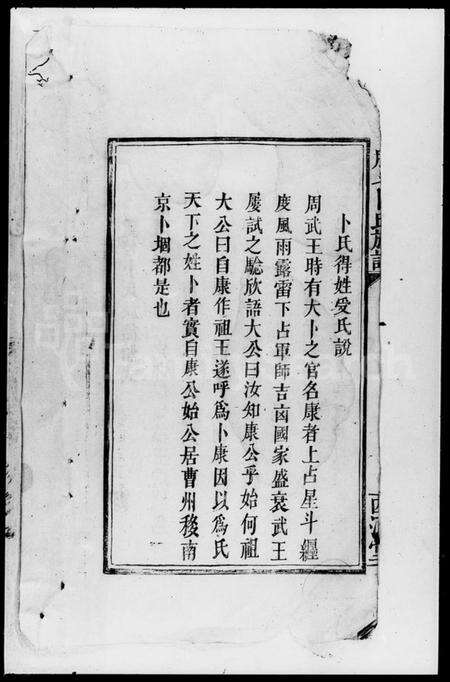 卜氏得姓受氏說
周武王時有大卜之官名康者上占星斗纒
度風雨露雷下占軍師吉凶國家盛衰武王
屢試之驗欣語大公曰汝知康公乎始何祖
大公曰自康作祖王遂呼爲卜康因以爲氏
天下之姓卜者實自康公始公居曹州移南
京卜堌都是也